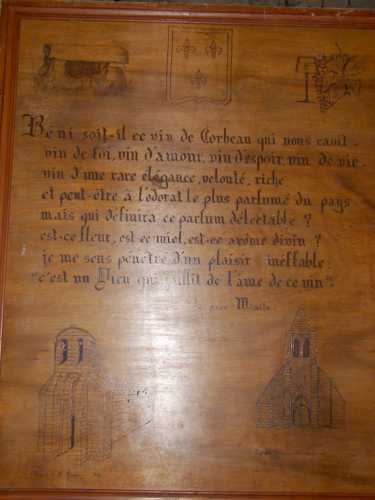 Béni soit-il ce vin de Corbeau qui nous ravit-
vin de foi, vin d'amour, vin d'espoir, vin de vie-
vin d'une rare élégance, velouté, riche
et peut-être à l'odorat le plus parfumé du pays
mais qui définira ce parfum délectable ?
est-ce fleur, est-ce miel, est-ce arôme divin ?
je me sens pénétré d'un plaisir ineffable:
"c'est un Dieu qui jaillit de l'âme de ce vin".